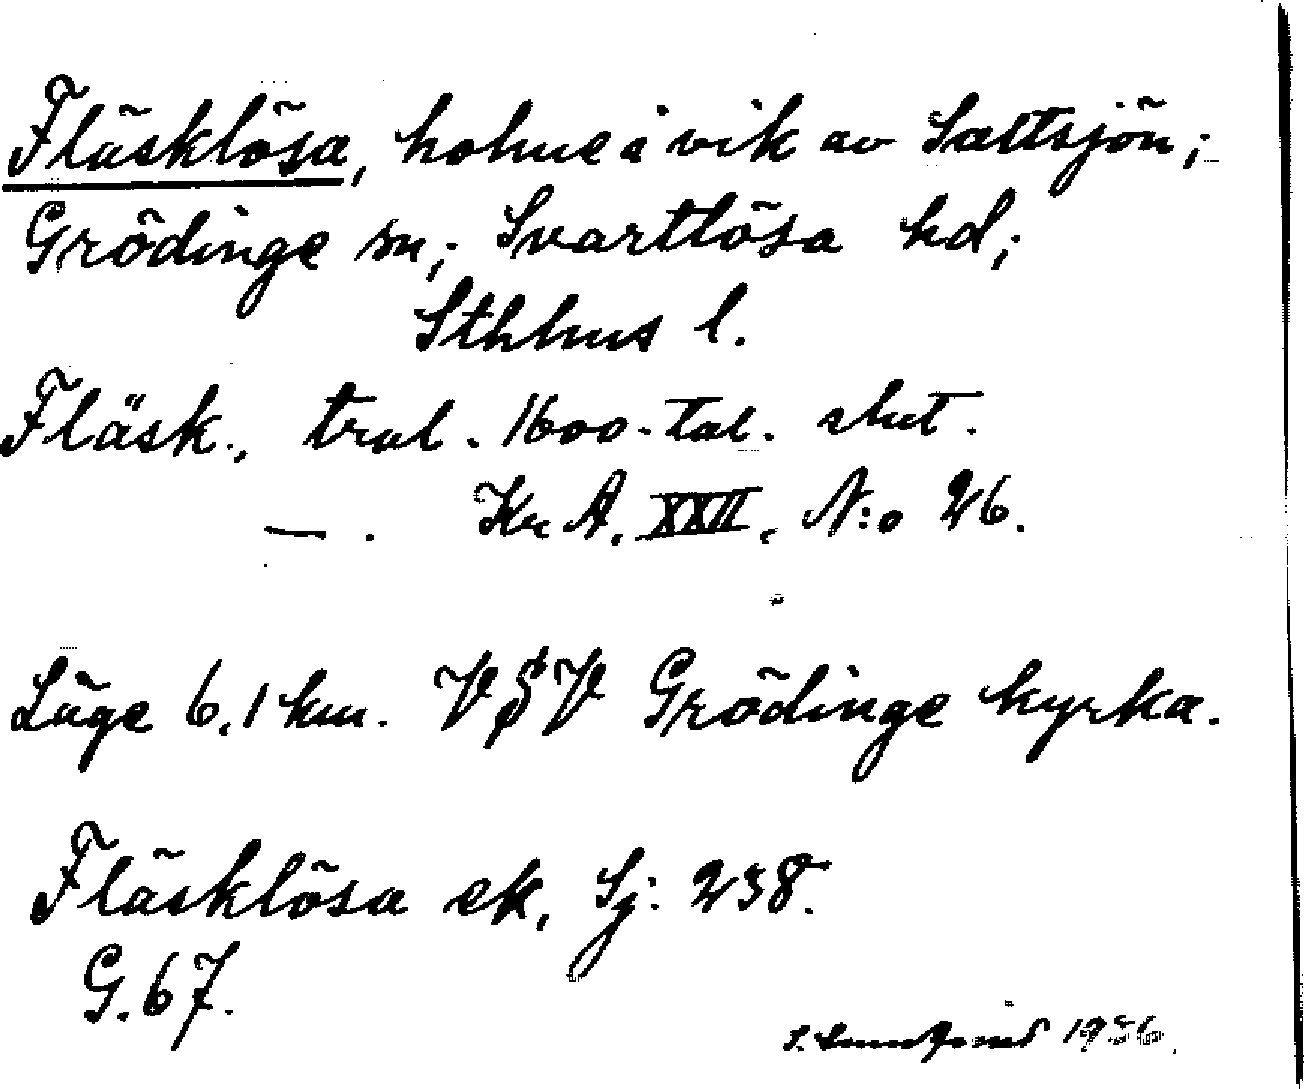 Fläsklösa, holme i vik av Saltsjön;
Grödinge sn; Svartlösa hd;
Sthlms l.
Fläsk., tral. 1600-tal. slut.
— . Kr A, XXII, N:o 26.
Läge 6,1 km. V Grödinge kyrka.
Fläsklösa ek, Sj: 238.
G. 67.
1936.